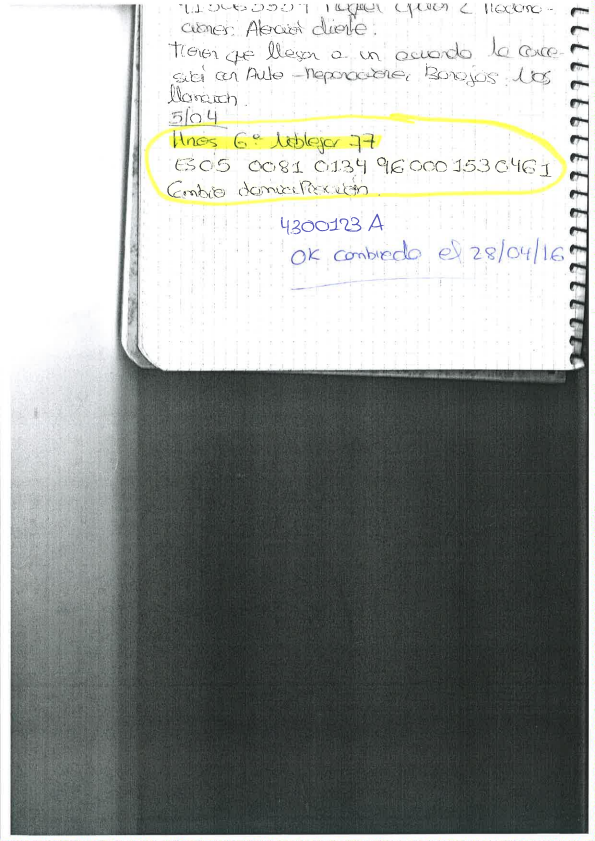 ciones: Atención cliente.
tienen que llegar a un acuerdo la conce-
sión con Auto-Reparaciones Barajas. Nos
llamarán.
5/04
Hnos Gª Noblejas 77
ES05 0081 0134 96 0001530461
Cambio domiciliación.
4300123 A
OK cambiado el 28/04/16